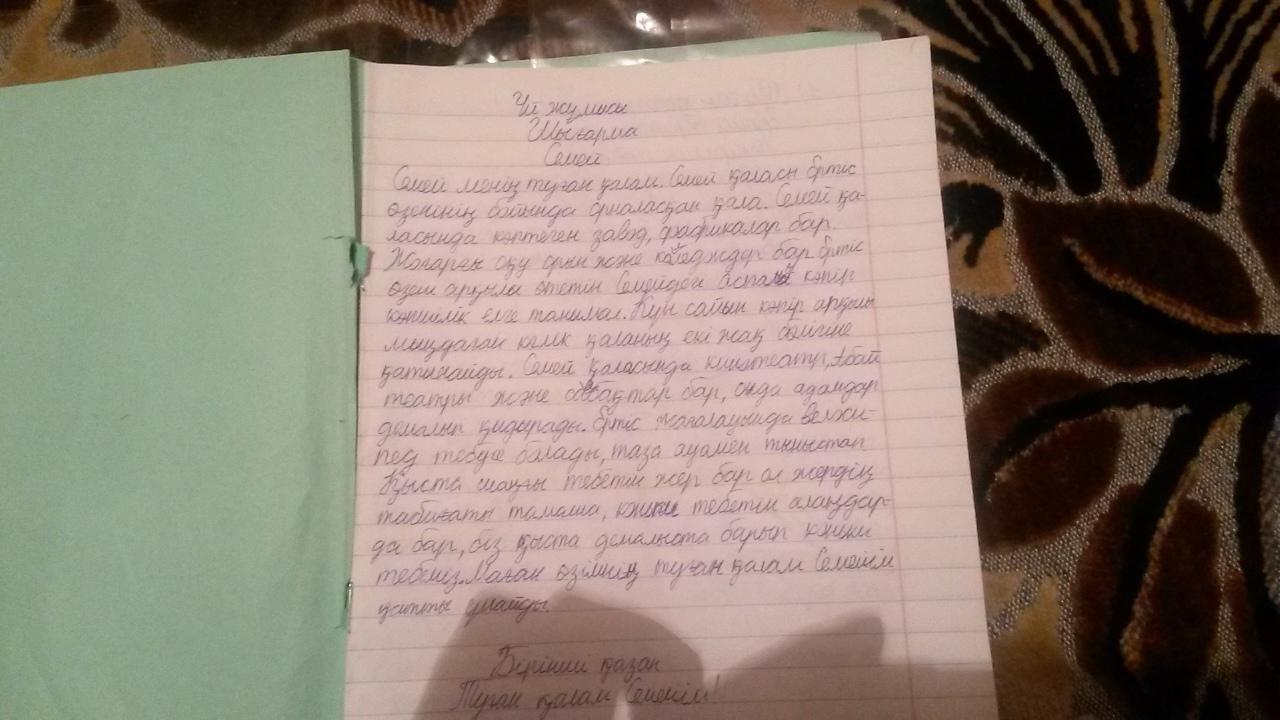 Үй жұмысы
Шығарма
Семей
Семей менің туған қалам. Семей қаласы Ертіс
өзенінің бойында орналасқан қала. Семей қа-
ласында көптеген завод, фабикалар бар.
Жоғарғы оқу орын және колледждер бар Ертіс
өзен арқылы өтетін Семейдегі аспалы көпір
көпшілік елге танымал. Күн сайын көпір арқылы
мыңдаған көлік қаланың екі жақ бөлігіне
қатынайды. Семей қаласында кинотеатр, Абай
театры және саябақтар бар, онда адамдар
демалып қыдырады. Ертіс жағалауында велжи-
пед тебуге болады, таза ауамен тыныстап
Қыста шаңғы тебетін жер бар ол жердің
табиғаты тамаша, коньки тебетін алаңдар-
да бар, біз қыста демалыста барып коньки
тебеміз. Маған өзімнің туған қалам Семейім
қатты ұнайды.
Бірінші қазан
Туған қалам Семейім!